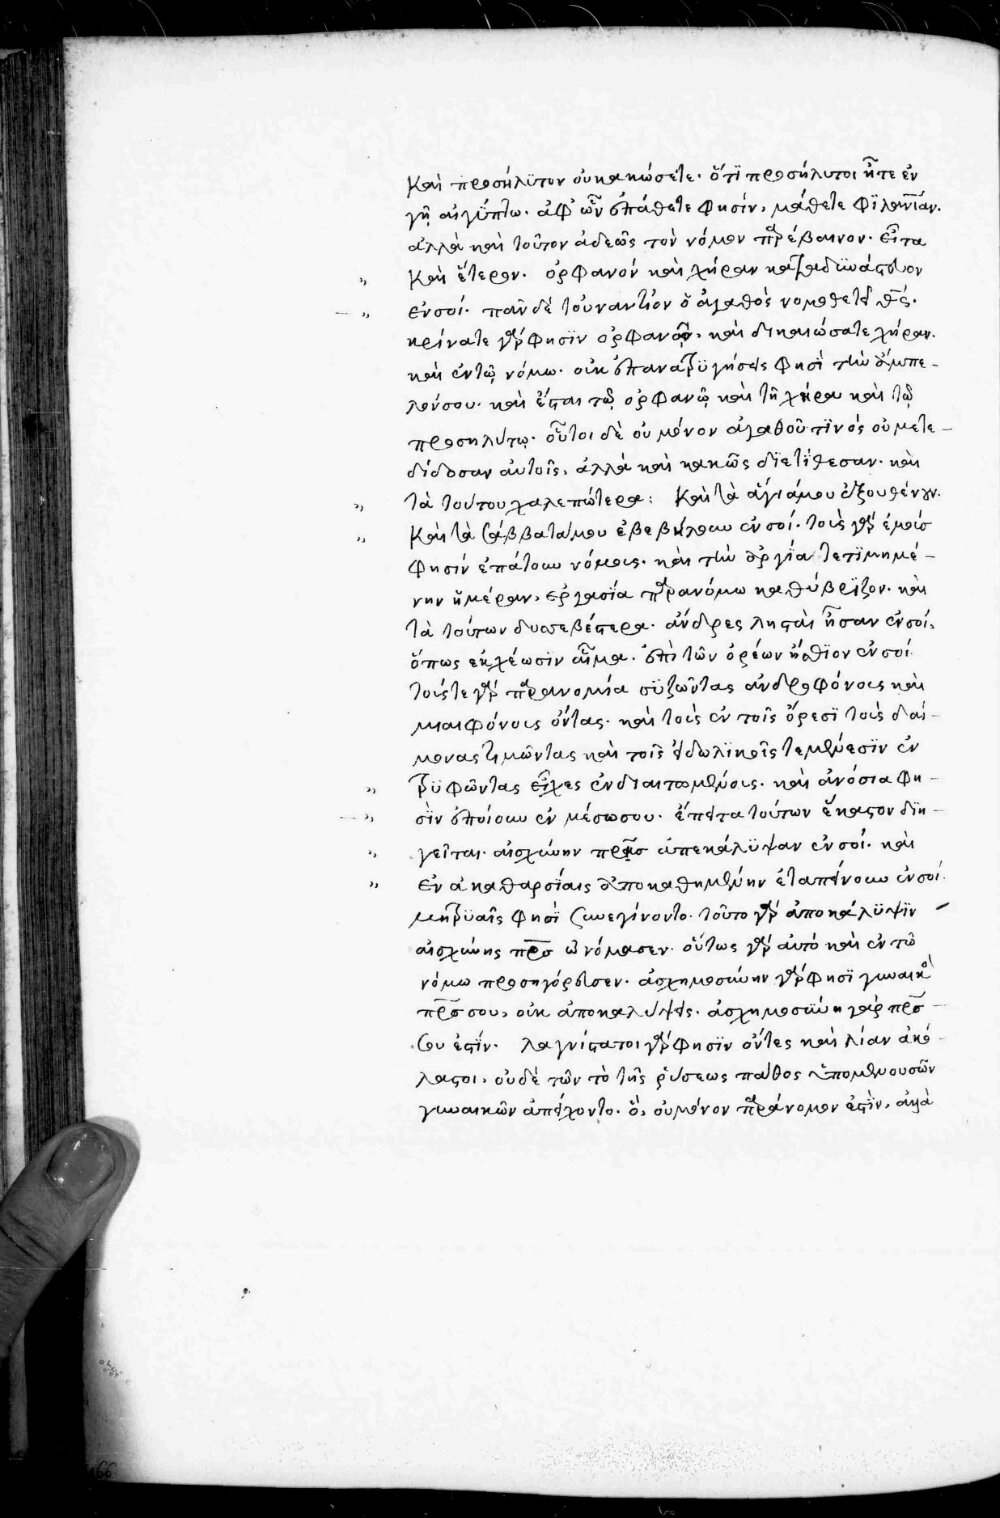 Καὶ προσήλϋτον οὐ κακώσετε· ὅτϊ προσήλυτοι ἦτε ἐν
γῆ αἰγϋπτω· ἀφ' ὧν ἐπάθετε φησίν, μάθετε φϊλανΐαν.
ἀλλὰ καὶ τοῦτον ἀδεῶς τὸν νόμον παρέβαινον· εἶτα
Καὶ ἕτερον· ὀρφανὸν καὶ χήραν καταδϋνάστευον
ἐν σοί· πᾶν δὲ τοὐναντίον ὁ ἀγαθὸς νομοθετεῖ θς·
κρίνατε γάρ φησϊν ὀρφανῶ, καὶ δικαιώσατε χήραν.
καὶ ἐν τῶ νόμω· οὐκ ἐπανατρϋγήσεις φησὶ τὴν ἄμπε-
λόν σου· καὶ ἔσται τῶ ὀρφανῶ καὶ τῆ χήρα καὶ τῶ
προσηλύτω· οὗτοι δὲ οὐ μόνον ἀγαθοῦ τϊνὸς οὐ μετε-
δίδοσαν αὐτοῖς, ἀλλὰ καὶ κακῶς δϊετίθεσαν· καὶ
τὰ τούτου χαλεπώτερα: Καὶ τὰ ἅγιά μου ἐξουθένουν.
Καὶ τὰ σάββατά μου ἐβεβήλουν ἐν σοί· τοὺς γὰρ ἐμοὺς
φησὶν ἐπάτουν νόμους· καὶ τὴν ἀργία τετϊμημέ-
νην ἡμέραν, ἐργασία παρανόμω καθύβρϊζον· καὶ
τὰ τούτων δυσσεβέστερα· ἄνδρες λησταὶ ἦσαν ἐν σοί,
ὅπως ἐκχέωσϊν αἷμα· ἐπὶ τῶν ὀρέων ἤσθϊον ἐν σοί
τούς τε γὰρ παρανομία σϋζῶντας ἀνδροφόνους καὶ
μιαιφόνους ὄντας· καὶ τοὺς ἐν τοῖς ὄρεσϊ τοὺς δαί-
μονας τιμῶντας καὶ τοῖς εἰδωλϊκοῖς τεμένεσϊν ἐν
τρϋφῶντας εἶχες ἐνδιαιτωμένους· καὶ ἀνόσια φη-
σὶν ἐποίουν ἐν μέσω σου· ἔπειτα τούτων ἕκαστον δϊη-
γεῖται· αἰσχύνην πρς ἀπεκάλϋψαν ἐν σοί· καὶ
ἐν ἀκαθαρσϊαις ἀποκαθημένην ἐταπείνουν ἐν σοί.
μητρϋαῖς φησὶ συνεγίνοντο· τοῦτο γὰρ ἀποκάλϋψϊν
αἰσχύνης πρς ὠνόμασεν· οὕτως γὰρ αὐτὸ καὶ ἐν τῶ
νόμω προσηγόρευσεν· ἀσχημοσύνην γάρ φησϊ γυναικὸ
πρς σου, οὐκ ἀποκαλύψεις· ἀσχημοσϋνη γὰρ πρς
σου ἐστϊν· λαγνίστατοι γάρ φησϊν ὄντες καὶ λίαν ἀκό-
λαστοι, οὐδὲ τῶν τὸ τῆς ῥύσεως πάθος ὑπομενουσῶν
γυναικῶν ἀπείχοντο· ὅ, οὐ μόνον παράνομον ἐστὶν, ἀλλὰ